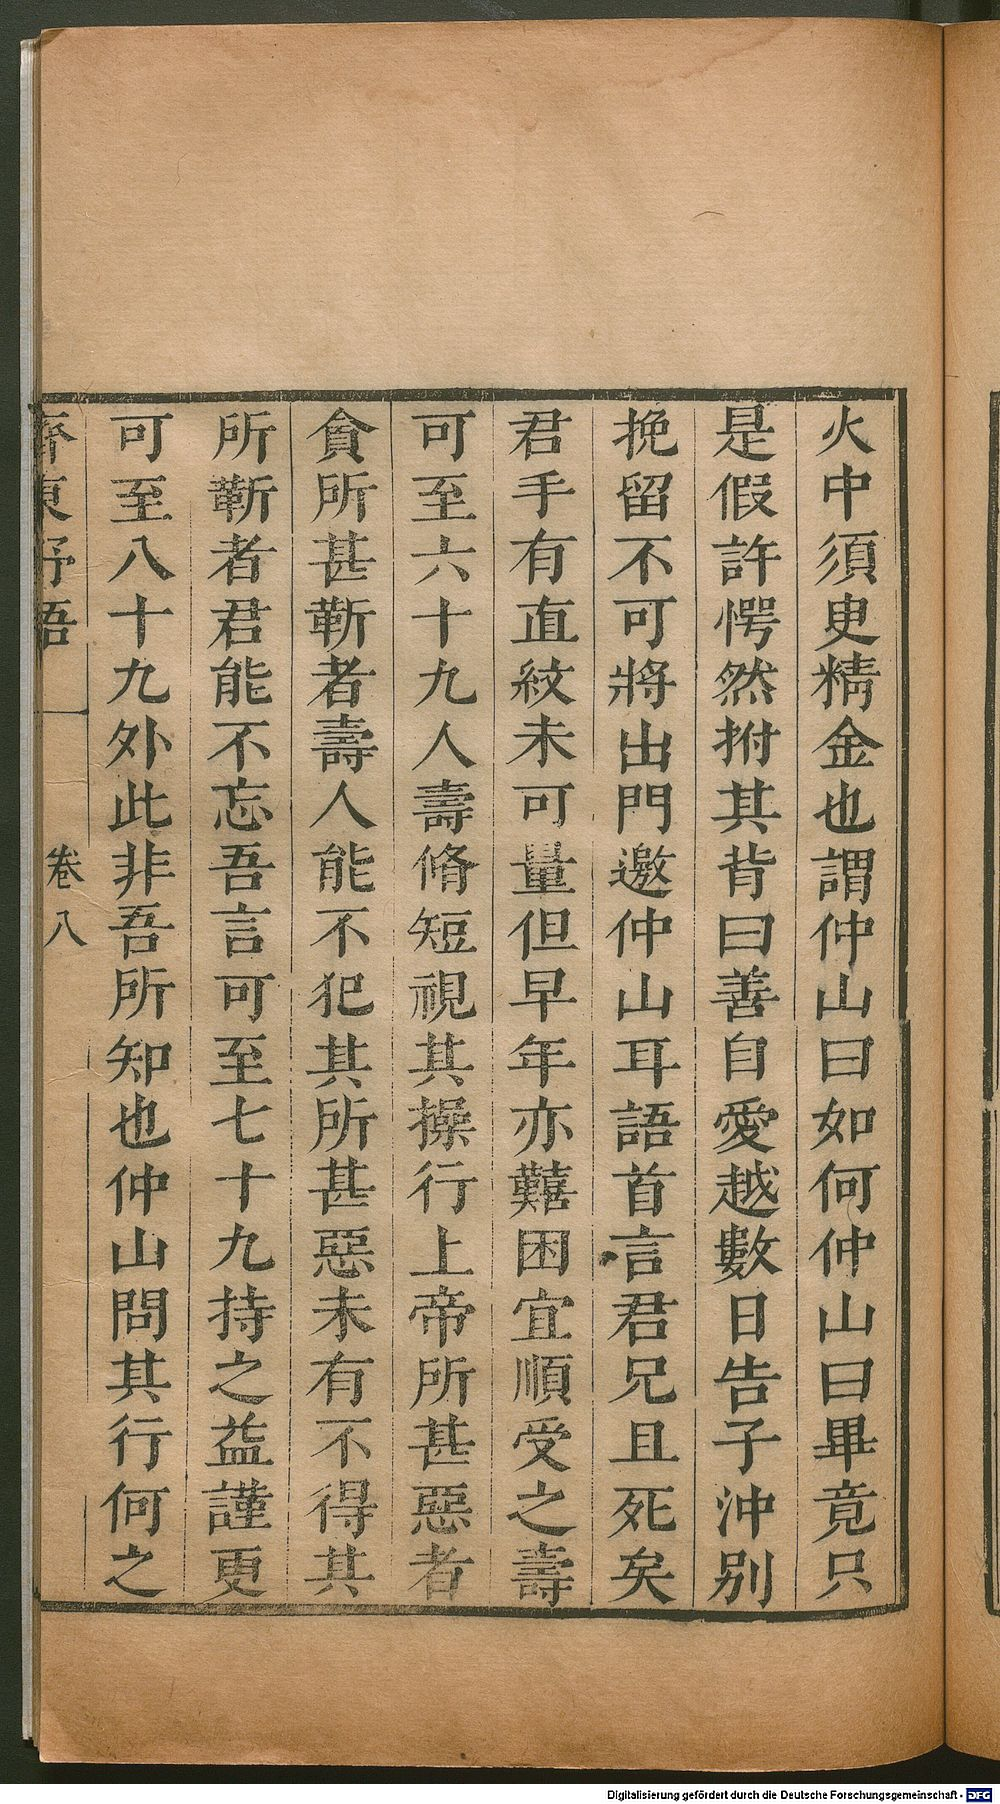 火中須臾精金也謂仲山曰如何仲山曰畢竟只
是假許愕然拊其背曰善自愛越數日告子沖別
挽留不可將出門邀仲山耳語首言君兄且死矣
君手有直紋未可量但早年亦難困宜順受之壽
可至六十九人壽脩短視其操行上帝所甚惡者
貪所甚靳者壽人能不犯其所甚惡未有不得其
所靳者君能不忘吾言可至七十九持之益謹更
可至八十九外此非吾所知也仲山問其行何之
齊東野語 卷八
Digitalisierung gefördert durch die Deutsche Forschungsgemeinschaft - DFG